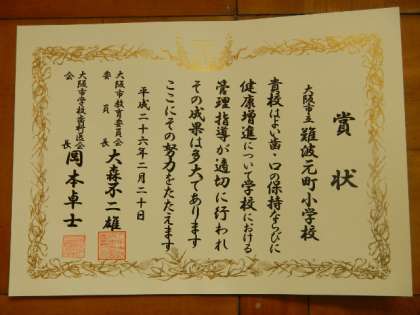 賞状
大阪市立 難波元町小学校
貴校はよい歯・口の保持ならびに
健康増進について学校における
管理指導が適切に行われ
その成果は多大であります
ここにその努力をたたえます
平成二十六年二月二十日
大阪市教育委員会
委員長 大森不二雄
大阪市学校歯科医会
会長 岡本卓士